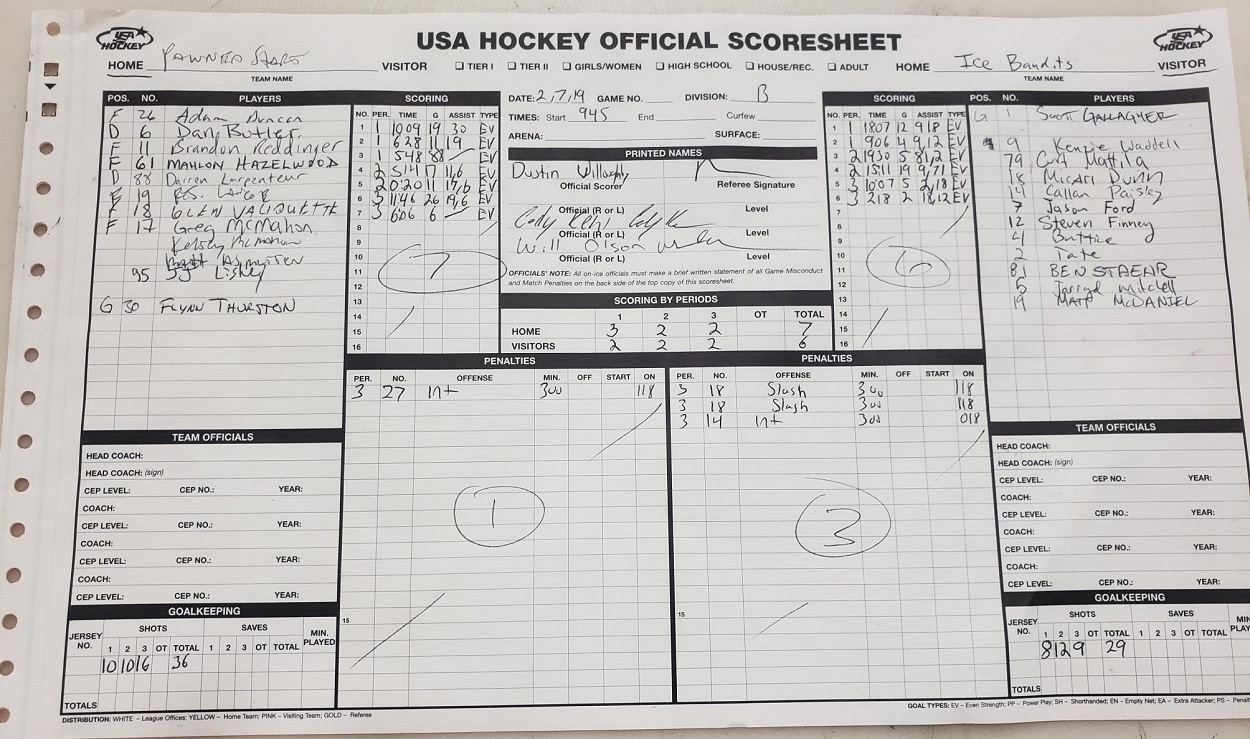 USA HOCKEY
USA HOCKEY OFFICIAL SCORESHEET
USA HOCKEY
HOME PAWNED STARS VISITOR
TEAM NAME
TIER I TIER II GIRLS/WOMEN HIGH SCHOOL HOUSE/REC. ADULT
HOME Ice Bandits VISITOR
TEAM NAME
POS. NO. PLAYERS
F 26 Adam Duncan
D 6 Dan Butler
F 11 Brandon Reddinger
F 61 MAHLON HAZELWOOD
D 88 Darren Carpenteur
F 19
F 18 GLEN VALIQUETTE
F 17 Greg McMahon
Kelsey McMahon
95
G 30 FLYNN THURSTON
SCORING
NO. PER. TIME G ASSIST TYPE
1 1 1009 19 30 EV
2 1 628 11 19 EV
3 1 548 88 — EV
4 2 1514 17 11,6 EV
5 2 0:20 11 17,6 EV
6 3 1146 26 19,6 EV
7 3 606 6 — EV
8
9
10
11
12
13
14
15
16
7
DATE: 2,7,19 GAME NO. DIVISION: B
TIMES: Start 945 End Curfew
ARENA: SURFACE:
PRINTED NAMES
Dustin Willoughby
Official Scorer Referee Signature
Official (R or L) Level
Cody
Official (R or L) Level
Will Olson
Official (R or L) Level
OFFICIALS' NOTE: All on-ice officials must make a brief written statement of all Game Misconduct
and Match Penalties on the back side of the top copy of this scoresheet.
SCORING BY PERIODS
1 2 3 OT TOTAL
HOME 3 2 2 7
VISITORS 2 2 2 6
SCORING
NO. PER. TIME G ASSIST TYPE
1 1 1807 12 9,18 EV
2 1 906 4 9,12 EV
3 2 1930 5 81,2 EV
4 2 1511 19 9,71 EV
5 3 1007 5 2,18 EV
6 3 218 2 18,12 EV
7
8
9
10
11
12
13
14
15
16
6
POS. NO. PLAYERS
G 1 SCOTT GALLAGHER
9 Kenzie Waddell
79 Curt Mattila
18 Micah Dunn
14 Callan Paisley
7 Jason Ford
12 Steven Finney
4 Buttice
2 Tate
81 BEN STAEAR
5 Jarryd Mitchell
19 MATT McDANIEL
PENALTIES
PER. NO. OFFENSE MIN. OFF START ON
3 27 Int 300 118
1
15
PENALTIES
PER. NO. OFFENSE MIN. OFF START ON
3 18 Slash 300 118
3 18 Slash 300 118
3 14 Int 300 018
3
15
TEAM OFFICIALS
HEAD COACH:
HEAD COACH: (sign)
CEP LEVEL: CEP NO.: YEAR:
COACH:
CEP LEVEL: CEP NO.: YEAR:
COACH:
CEP LEVEL: CEP NO.: YEAR:
COACH:
CEP LEVEL: CEP NO.: YEAR:
GOALKEEPING
JERSEY NO. SHOTS SAVES MIN. PLAYED
1 2 3 OT TOTAL 1 2 3 OT TOTAL
10 10 16 36
TOTALS
TEAM OFFICIALS
HEAD COACH:
HEAD COACH: (sign)
CEP LEVEL: CEP NO.: YEAR:
COACH:
CEP LEVEL: CEP NO.: YEAR:
COACH:
CEP LEVEL: CEP NO.: YEAR:
COACH:
CEP LEVEL: CEP NO.: YEAR:
GOALKEEPING
JERSEY NO. SHOTS SAVES MIN. PLAY
1 2 3 OT TOTAL 1 2 3 OT TOTAL
8 12 9 29
TOTALS
DISTRIBUTION: WHITE – League Offices; YELLOW – Home Team; PINK – Visiting Team; GOLD – Referee
GOAL TYPES: EV – Even Strength; PP – Power Play; SH – Shorthanded; EN – Empty Net; EA – Extra Attacker; PS – Penalt